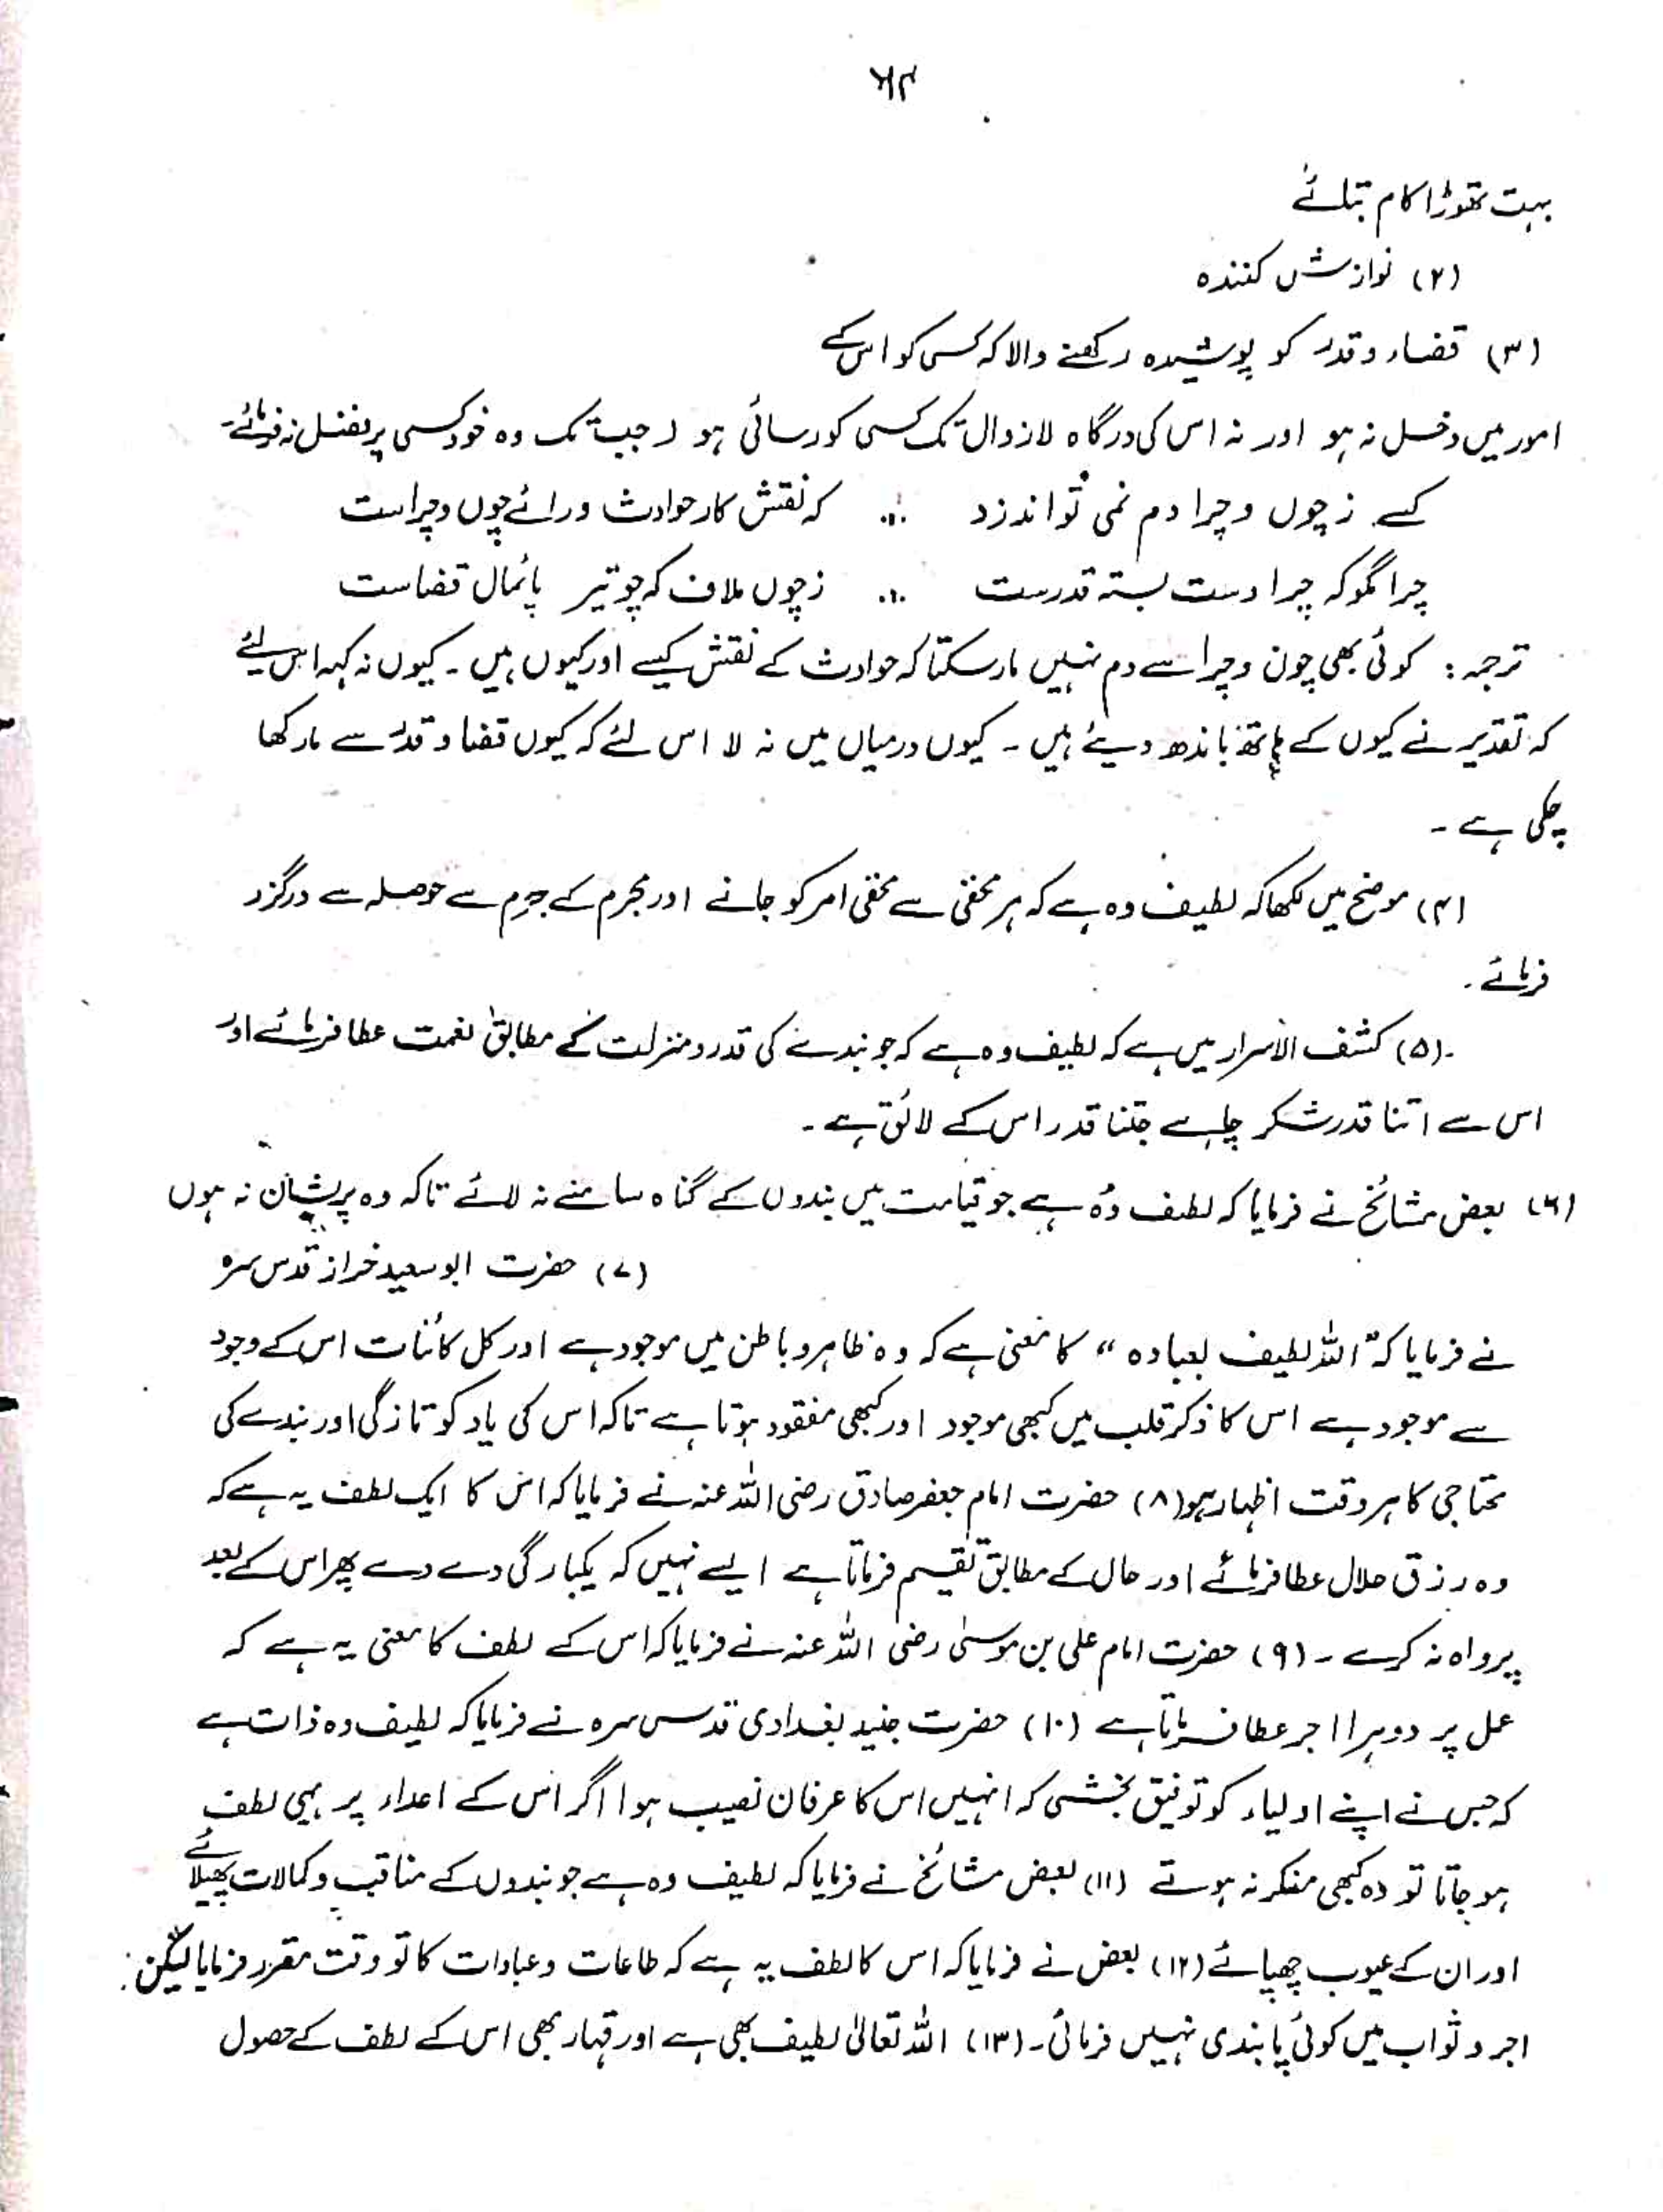 ۴۲
بہت تھوڑا کام بتلائے
(۲) نوازش کنندہ
(۳) قضاء و قدر کو پوشیدہ رکھنے والا کہ کسی کو اس کے
امور میں دخل نہ ہو اور نہ اس کی درگاہ لازوال تک کسی کو رسائی ہو (جب تک وہ خود کسی پر فضل نہ فرمائے۔
کسے زچوں و چرا دم نمی تواند زد ؞ کہ نقش کار حوادث ورائے چوں و چراست
چرا مگو کہ چرا دست بستہ قدرست ؞ زچوں ملاف کہ چو تیر پائمال قضاست
ترجمہ : کوئی بھی چون و چرا سے دم نہیں مار سکتا کہ حوادث کے نقش کیسے اور کیوں ہیں ۔ کیوں نہ کہہ اس لیئے
کہ تقدیر نے کیوں کے ہاتھ باندھ دیئے ہیں ۔ کیوں درمیاں میں نہ لا اس لئے کہ کیوں قضا و قدر سے مار کھا
چکی ہے ۔
(۴) موضح میں لکھا کہ لطیف وہ ہے کہ ہر مخفی سے مخفی امر کو جانے اور مجرم کے جرم سے حوصلہ سے درگزر
فرمائے ۔
(۵) کشف الاسرار میں ہے کہ لطیف وہ ہے کہ جو بندے کی قدر و منزلت کے مطابق نعمت عطا فرمائے اور
اس سے اتنا قدر شکر چاہے جتنا قدر اس کے لائق ہے ۔
(۶) بعض مشائخ نے فرمایا کہ لطیف وہ ہے جو قیامت میں بندوں کے گناہ سامنے نہ لائے تاکہ وہ پریشان نہ ہوں
(۷) حضرت ابو سعید خراز قدس سرہ
نے فرمایا کہ "اللہ لطیف بعبادہ" کا معنی ہے کہ وہ ظاہر و باطن میں موجود ہے اور کل کائنات اس کے وجود
سے موجود ہے اس کا ذکر قلب میں کبھی موجود اور کبھی مفقود ہوتا ہے تاکہ اس کی یاد کو تازگی اور بندے کی
محتاجی کا ہر وقت اظہار ہو (۸) حضرت امام جعفر صادق رضی اللہ عنہ نے فرمایا کہ اس کا ایک لطف یہ ہے کہ
وہ رزق حلال عطا فرمائے اور حال کے مطابق تقسیم فرماتا ہے ایسے نہیں کہ یکبارگی دے دے پھر اس کے بعد
پرواہ نہ کرے ۔ (۹) حضرت امام علی بن موسیٰ رضی اللہ عنہ نے فرمایا کہ اس کے لطف کا معنی یہ ہے کہ
عمل پر دوہرا اجر عطا فرماتا ہے (۱۰) حضرت جنید بغدادی قدس سرہ نے فرمایا کہ لطیف وہ ذات ہے
کہ جس نے اپنے اولیاء کو توفیق بخشی کہ انہیں اس کا عرفان نصیب ہوا اگر اس کے اعداء پر یہی لطف
ہو جاتا تو وہ کبھی منکر نہ ہوتے (۱۱) بعض مشائخ نے فرمایا کہ لطیف وہ ہے جو بندوں کے مناقب و کمالات پھیلائے
اور ان کے عیوب چھپائے (۱۲) بعض نے فرمایا کہ اس کا لطف یہ ہے کہ طاعات و عبادات کا تو وقت مقرر فرمایا لیکن
اجر و ثواب میں کوئی پابندی نہیں فرمائی۔ (۱۳) اللہ تعالیٰ لطیف بھی ہے اور قہار بھی اس کے لطف کے حصول